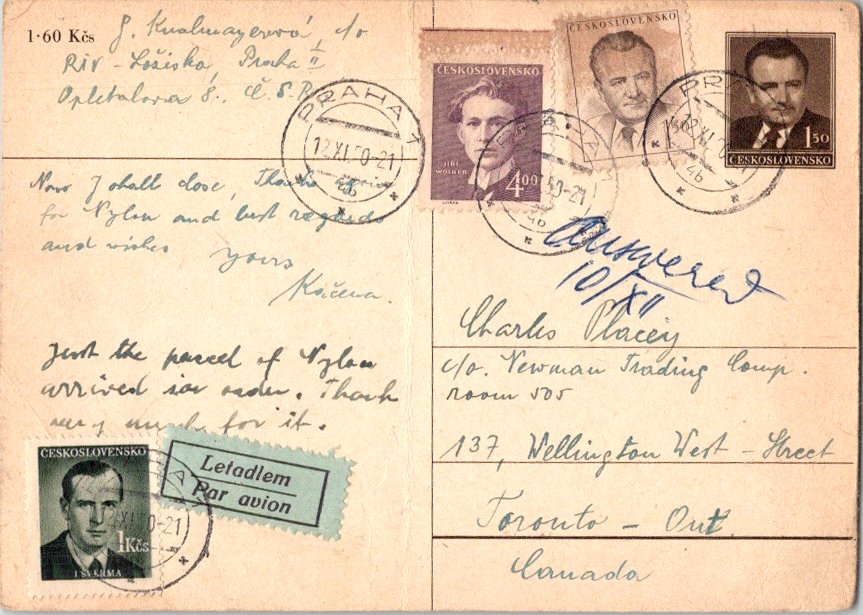 1·60 Kčs
J. Kualmayerová c/o
RIV - Ložiska, Praha II
Opletalova 8., Č.S.R.
Now I shall close, Thanks again
for Nylon and best regards
and wishes
Yours
Káčena.
Just the parcel of Nylon
arrived in order. Thank
very much for it.
ČESKOSLOVENSKO
1Kčs
J. ŠVERMA
Letadlem
Par avion
PRAHA 1
12.XI.50-21
4b
ČESKOSLOVENSKO
JIŘÍ
WOLKER
4.00
50-21
4b
ČESKOSLOVENSKO
150
PRAHA
12.XI
4b
1 50
ČESKOSLOVENSKO
Answered
10/XII
Charles Placey
c/o. Newman Trading Comp.
room 505
137, Wellington West - Street
Toronto - Ont.
Canada